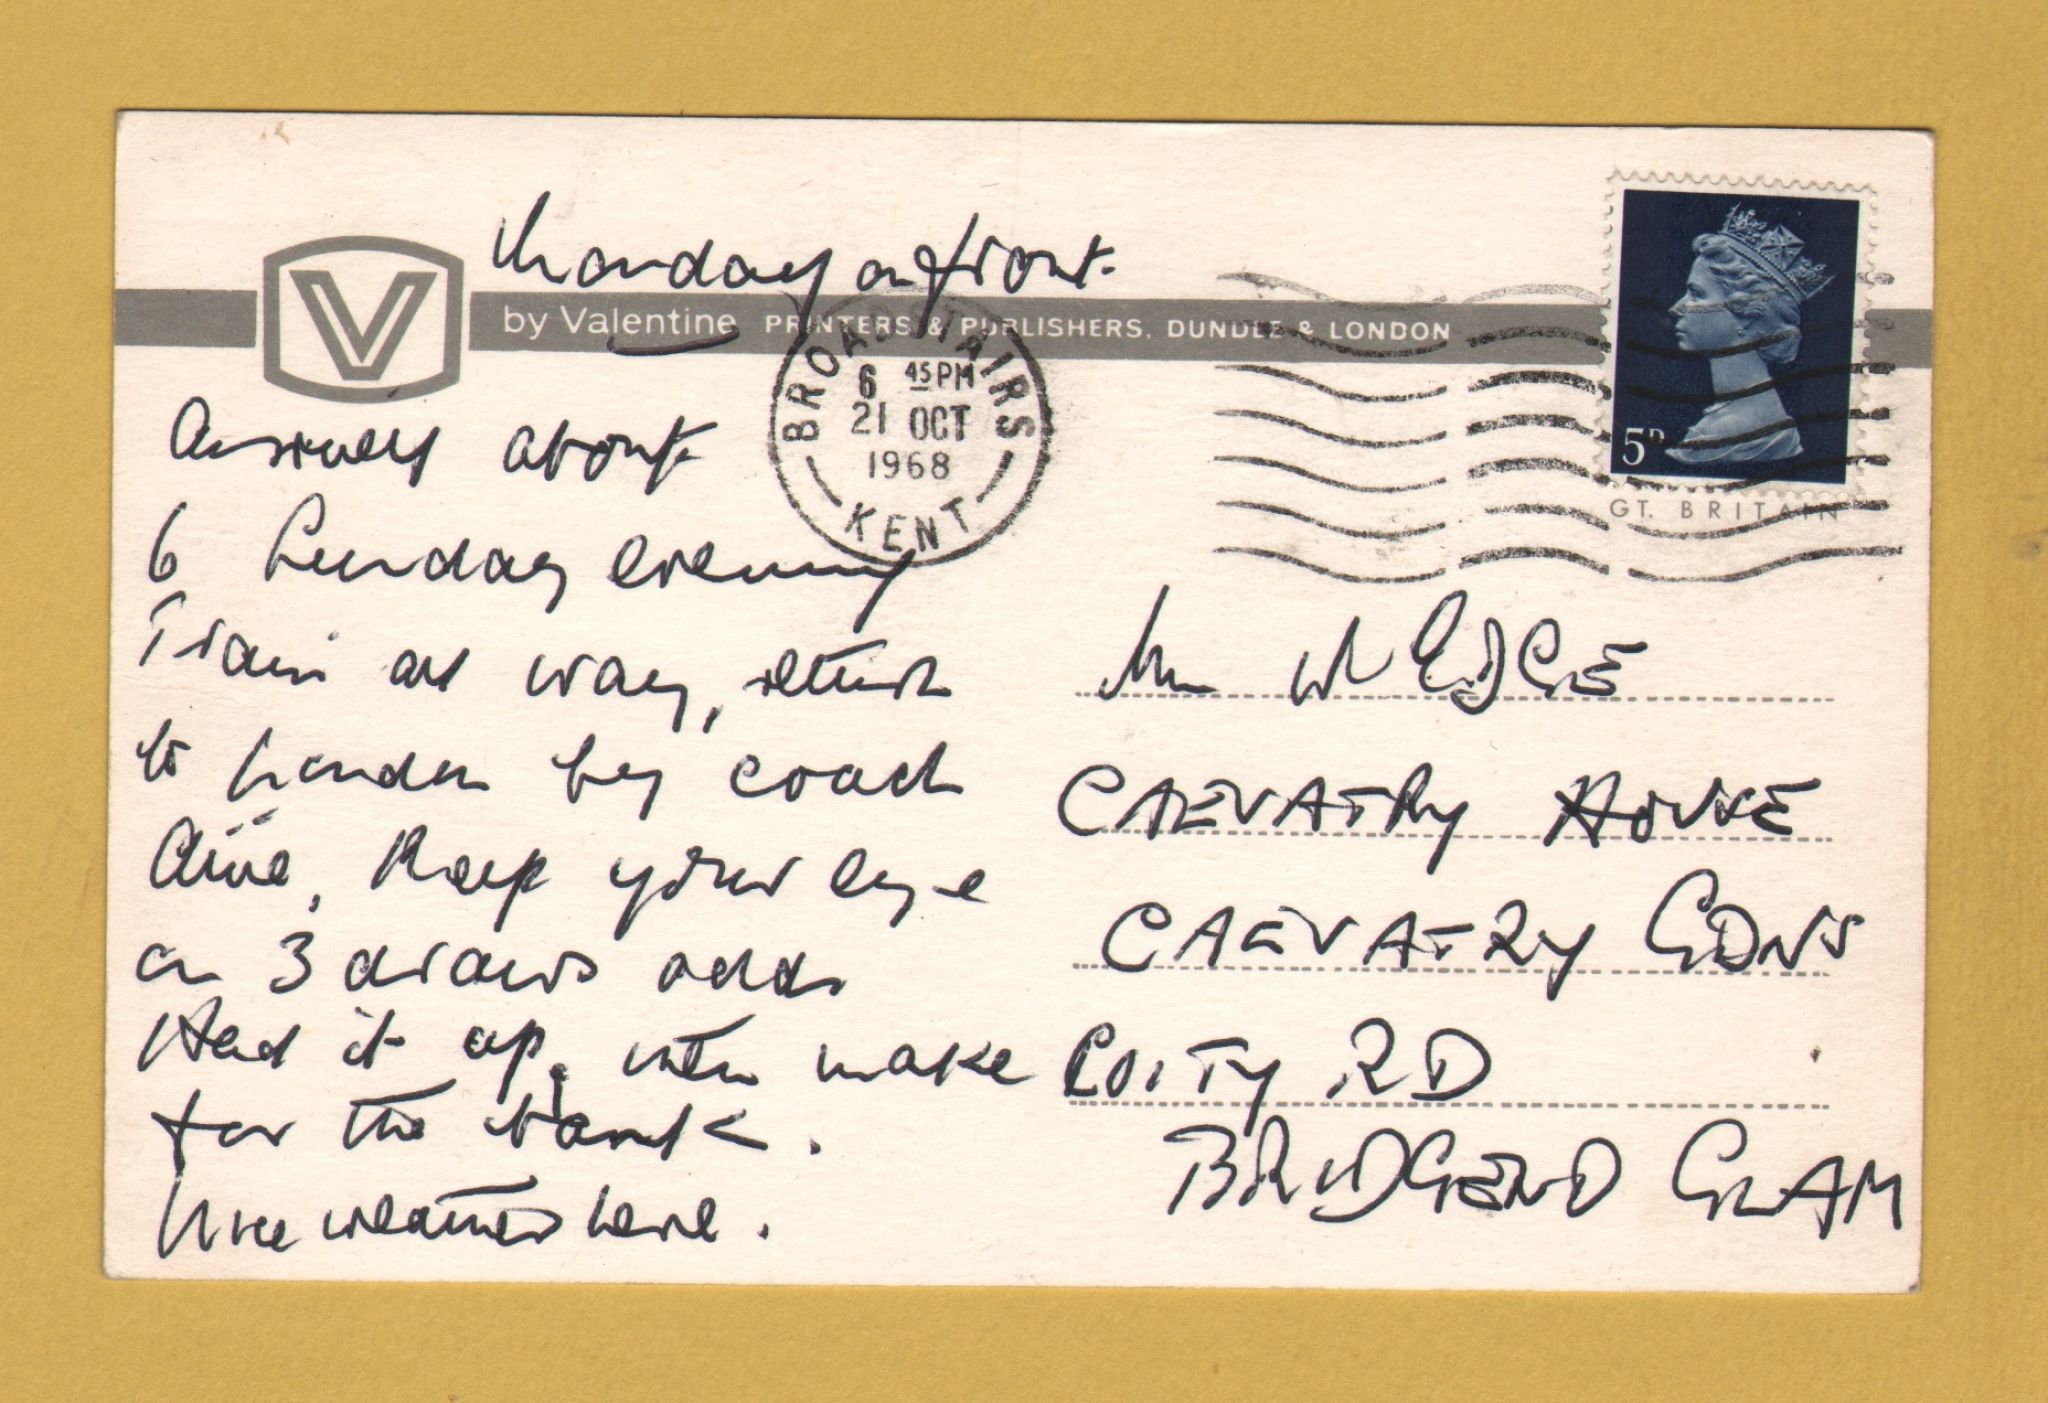 Monday on front.
V
by Valentine PRINTERS & PUBLISHERS, DUNDEE & LONDON
BROADSTAIRS
6 45PM
21 OCT
1968
KENT
5D
GT. BRITAIN
Arrived about
6 Sunday evening
Train all way, return
to London by coach
Keep your eye
on 3 draws odds
Head it up, then make
for the bank.
Nice weather here.
W EDGE
CAEVATRY HOUSE
CAEVATRY GDNS
COITY RD
BRIDGEND GLAM